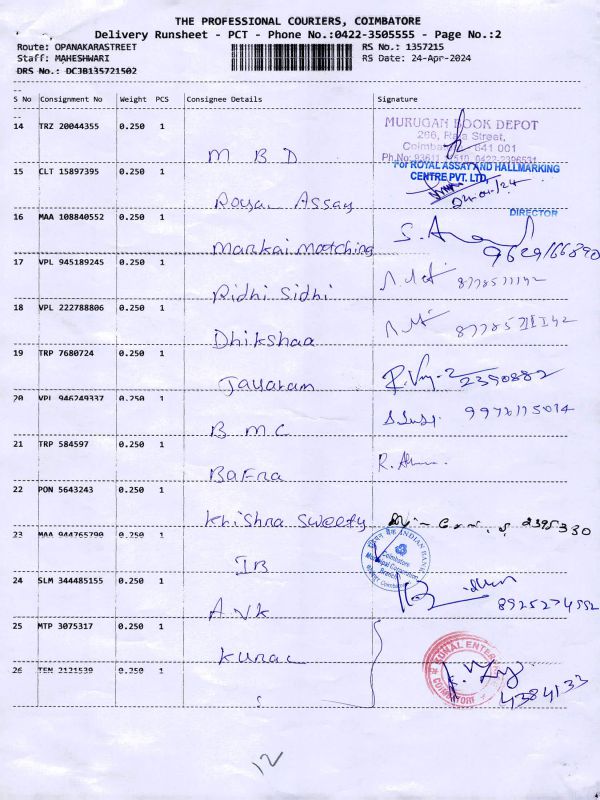 THE PROFESSIONAL COURIERS, COIMBATORE
Delivery Runsheet - PCT - Phone No.:0422-3505555 - Page No.:2
Route: OPANAKARASTREET
RS No.: 1357215
Staff: MAHESHWARI
RS Date: 24-Apr-2024
DRS No.: DCJB135721502
S No Consignment No Weight PCS Consignee Details Signature
14 TRZ 20044355 0.250 1
MURUGAN BOOK DEPOT
266, Raja Street,
641 001
M B D
15 CLT 15897395 0.250 1
For ROYAL ASSAY AND HALLMARKING
CENTRE PVT. LTD.
24/04/24
Royal Assay
DIRECTOR
16 MAA 108840552 0.250 1
Mankai matching
17 VPL 945189245 0.250 1
Ridhi Sidhi
18 VPL 222788806 0.250 1
Dhikshaa
19 TRP 7680724 0.250 1
2390882
Jayaram
20 VPL 946249337 0.250 1
B M C
21 TRP 584597 0.250 1
Bafna
22 PON 5643243 0.250 1
Krishna Sweety
2395330
23 MAA 944765790 0.250 1
INDIAN BANK
Coimbatore
Municipal Corporation
Branch
IB
24 SLM 344485155 0.250 1
8925274552
AVK
25 MTP 3075317 0.250 1
Kunal
KUNAL ENTER
COIMBATORE
26 TEN 2121539 0.250 1
4384133
12